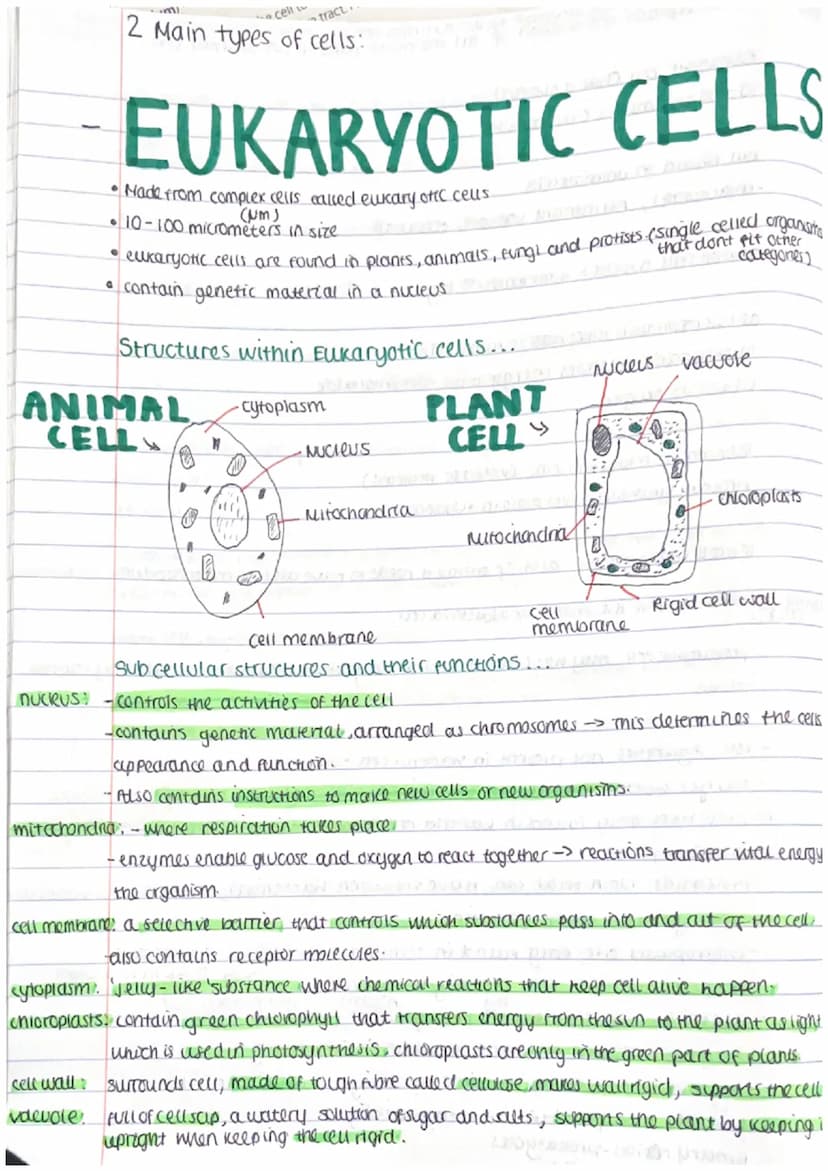 cell
tract.
2 Main types of cells:
- EUKARYOTIC CELLS
• Made from complex cells called eukaryotic cells
(Nm)
• 10-100 micrometers in size
• eukaryotic cells are found in plants, animals, fungi and protists (single celled organisms
that dont fit other
categories)
• contain genetic material in a nucleus
Structures within Eukaryotic cells...
nucleus vacuole
ANIMAL CELL
cytoplasm
Nucleus
Mitochondria
cell membrane
PLANT CELL
chloroplasts
Mitochondria
cell
membrane
Rigid cell wall
Subcellular structures and their functions...
nucleus: - controls the activities of the cell
- contains genetic material, arranged as chromosomes -> this determines the cells
appearance and function.
- Also contains instructions to make new cells or new organisms.
mitochondria: - where respiration takes place
- enzymes enable glucose and oxygen to react together -> reactions transfer vital energy
the organism.
cell membrane: a selective barrier, that controls which substances pass into and out of the cell.
also contains receptor molecules.
cytoplasm: 'jelly-like' substance where chemical reactions that keep cell alive happen.
chloroplasts: contain green chlorophyll that transfers energy from the sun to the plant as light
which is used in photosynthesis, chloroplasts are only in the green part of plants.
cell wall: surrounds cell, made of tough fibre called cellulose, makes wall rigid, supports the cell
vacuole: full of cell sap, a watery solution of sugar and salts, supports the plant by keeping i
upright when keeping the cell rigid.